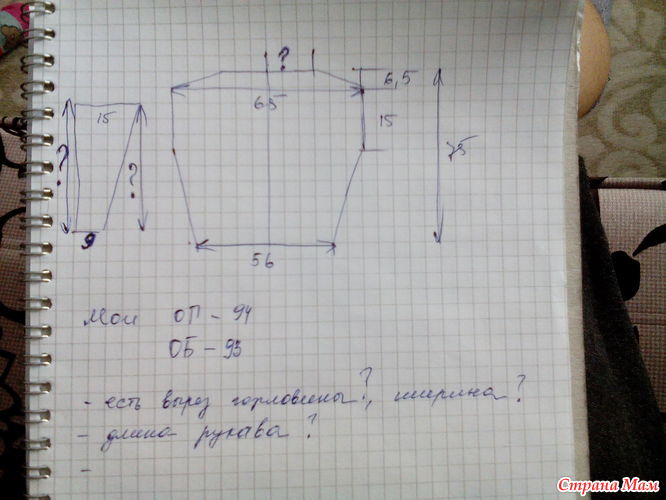 ?
6,5
65
15
15
?
?
75
9
56
Мои ОП - 94
ОБ - 93
- есть вырез горловины?, ширина?
- длина рукава?
-
Страна Мам